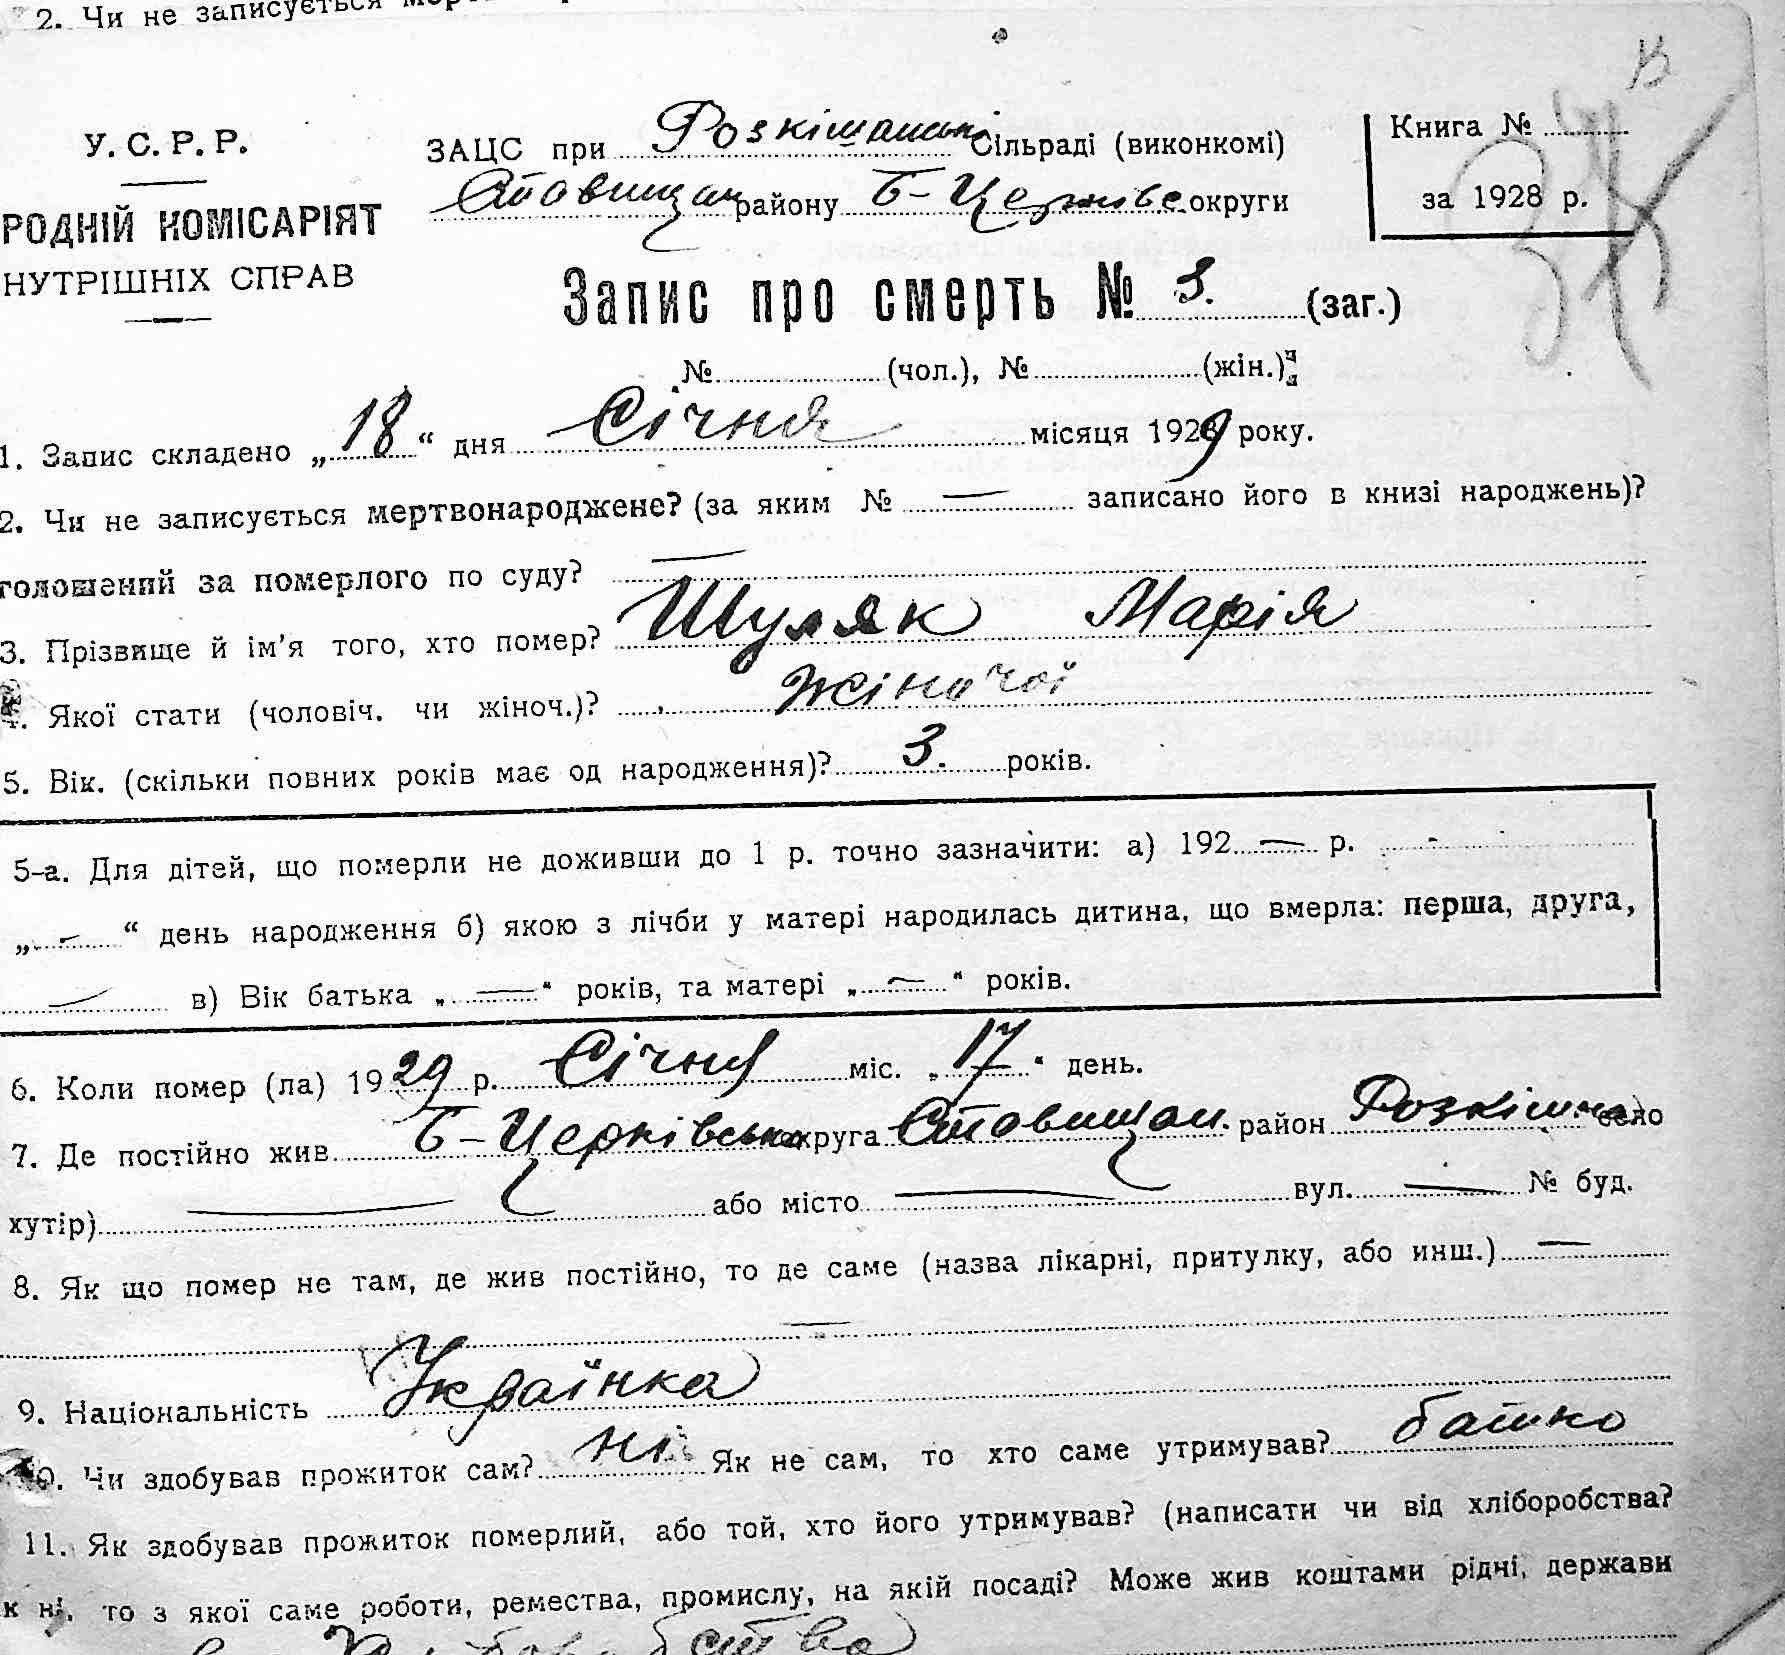 2. Чи не записується
У. С. Р. Р.
РОДНІЙ КОМІСАРІЯТ
НУТРІШНІХ СПРАВ
ЗАЦС при Розкішанські Сільраді (виконкомі)
Ставищан району Б-Церківс. округи
Книга №
за 1928 р.
Запис про смерть № 3. (заг.)
№ (чол.), № (жін.)
1. Запис складено „18“ дня Січня місяця 1929 року.
2. Чи не записується мертвонароджене? (за яким № — записано його в книзі народжень)?
голошений за померлого по суду? —
3. Прізвище й ім’я того, хто помер? Шуляк Марія
4. Якої стати (чоловіч. чи жіноч.)? жіночої
5. Вік. (скільки повних років має од народження)? 3. років.
5-а. Для дітей, що померли не доживши до 1 р. точно зазначити: а) 192 — р. -
„ — “ день народження б) якою з лічби у матері народилась дитина, що вмерла: перша, друга,
— в) Вік батька „ — “ років, та матері „ — “ років.
6. Коли помер (ла) 1929 р. Січня міс. „17“ день.
7. Де постійно жив Б-Церківська округа Ставищан. район Розкішна село
хутір) — або місто — вул. — № буд.
8. Як що помер не там, де жив постійно, то де саме (назва лікарні, притулку, або инш.) —
—
9. Національність Українка
10. Чи здобував прожиток сам? ні Як не сам, то хто саме утримував? батько
11. Як здобував прожиток померлий, або той, хто його утримував? (написати чи від хліборобства?
к ні, то з якої саме роботи, ремества, промислу, на якій посаді? Може жив коштами рідні, держави
Хліборобства